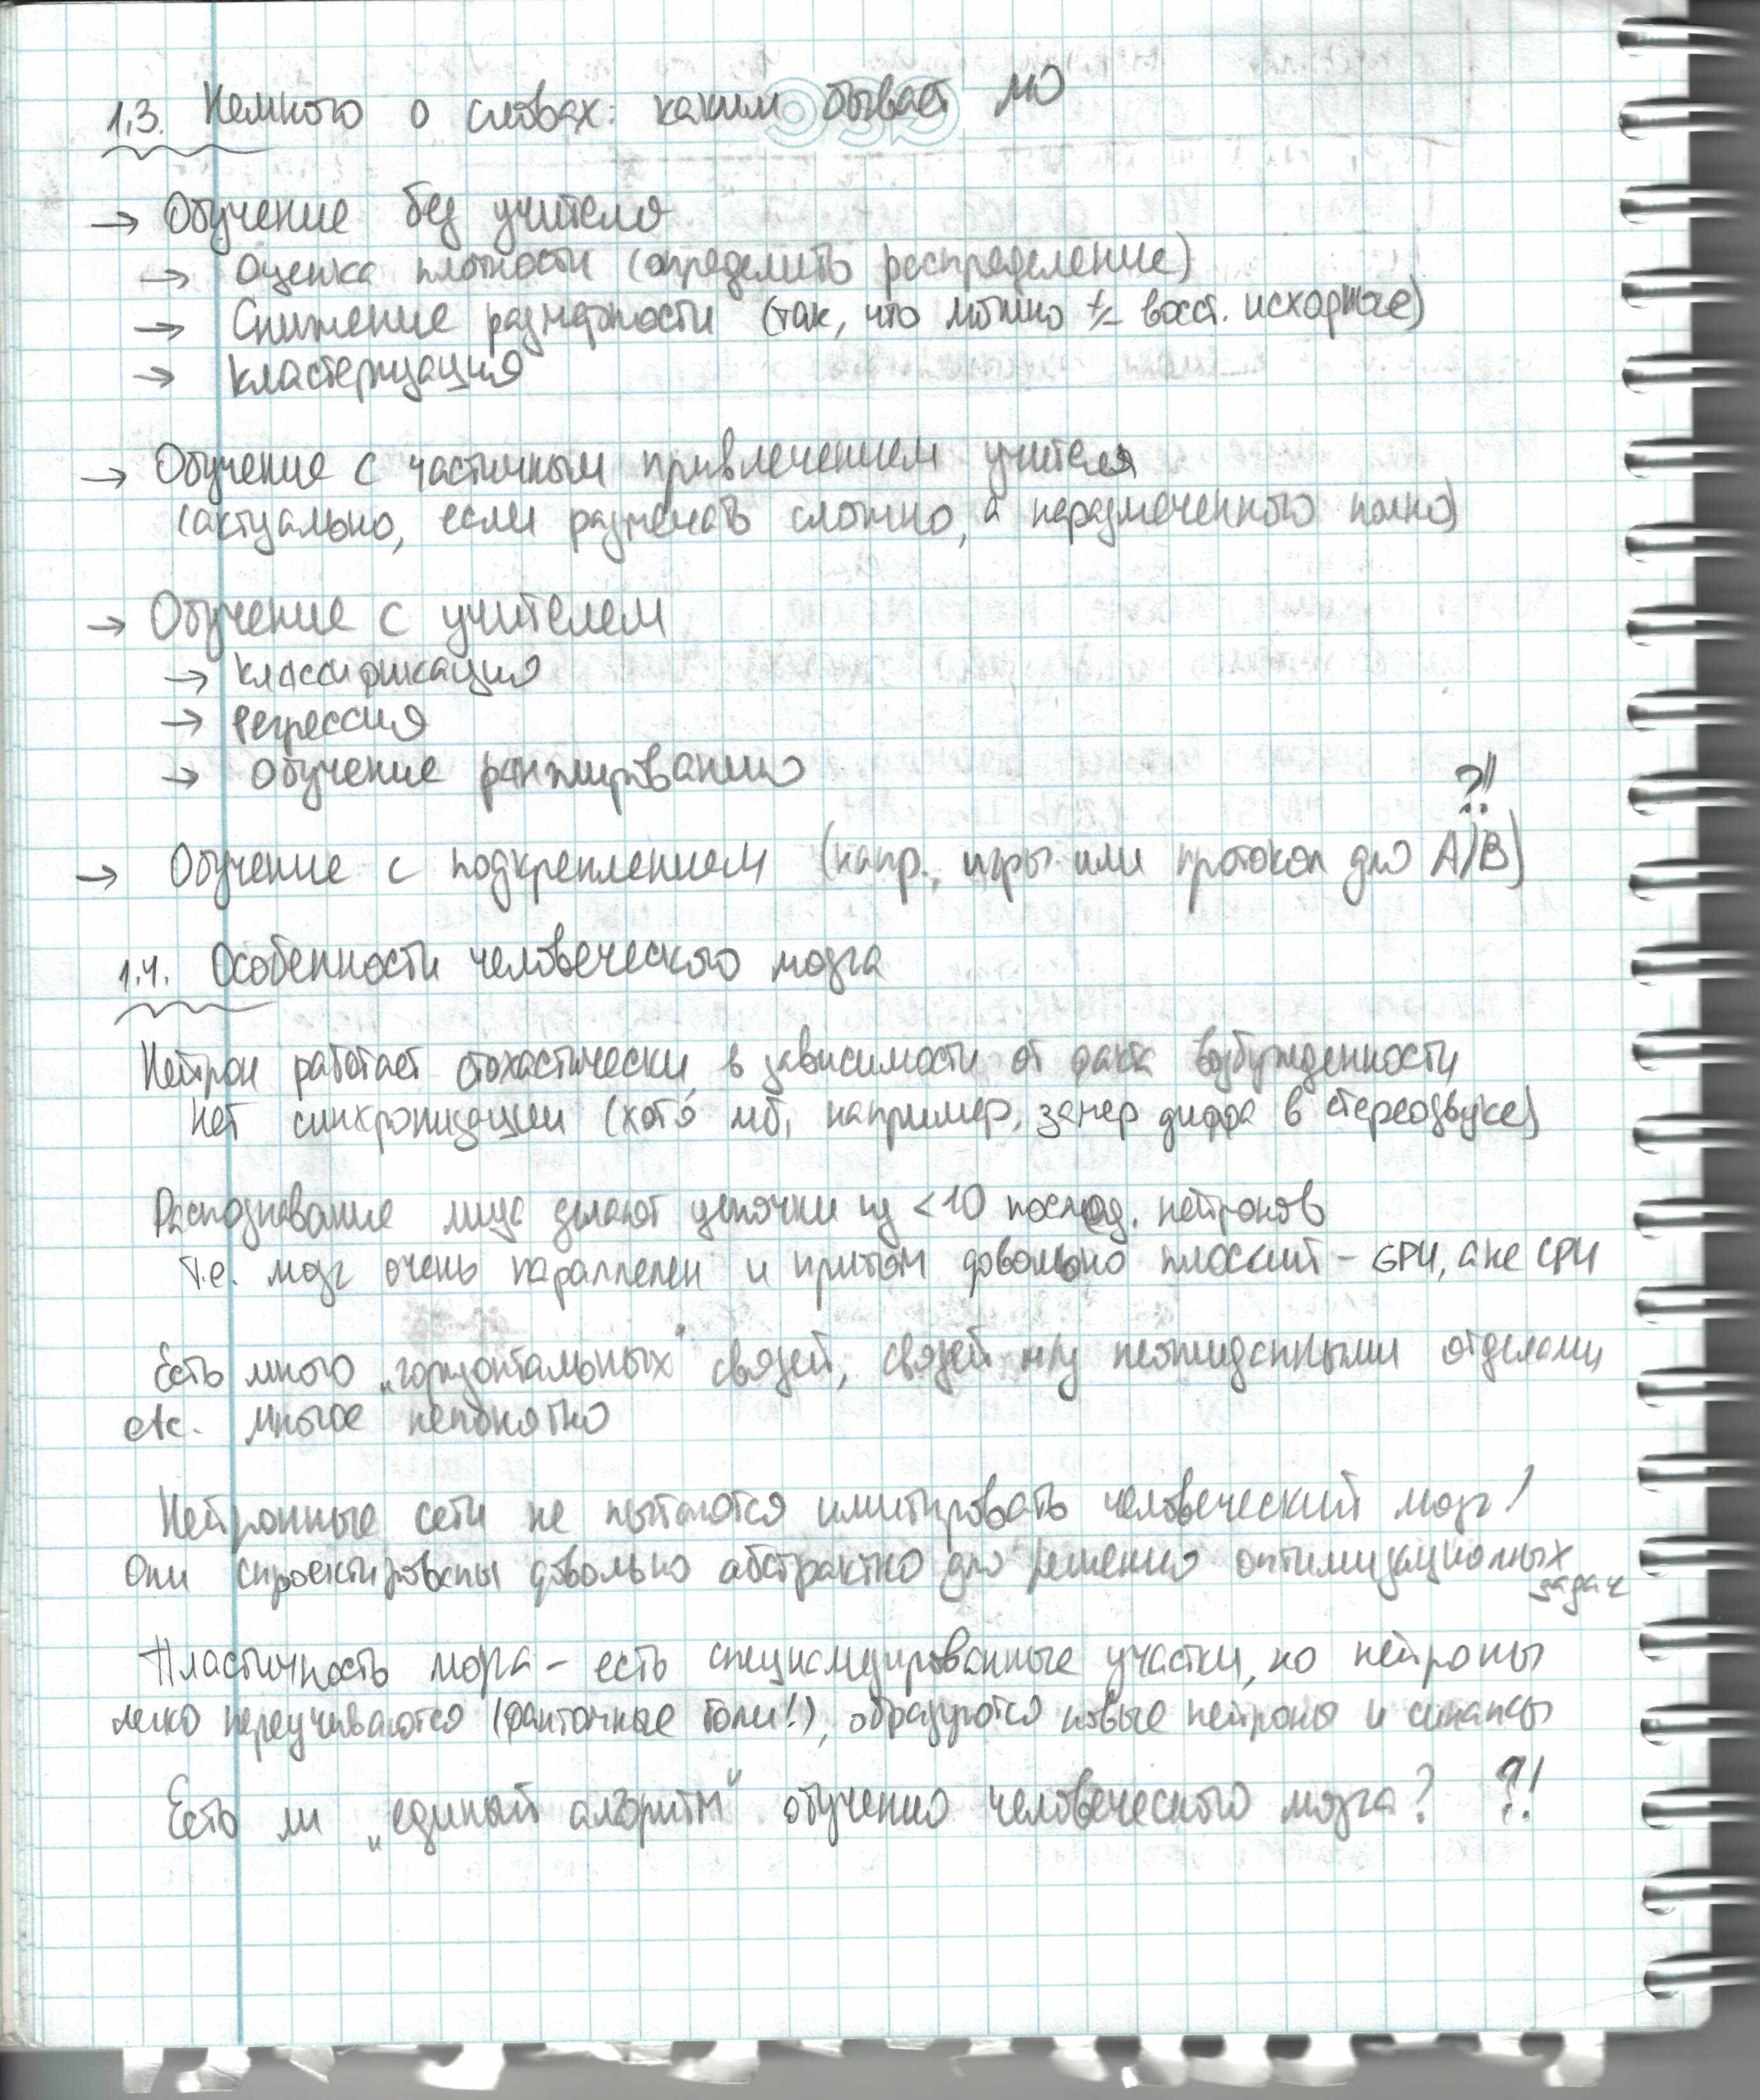 1.3. Немного о словах: каким бывает МО
→ Обучение без учителя
→ Оценка плотности (определить распределение)
→ Снижение размерности (так, что можно +/- восст. исходные)
→ Кластеризация
→ Обучение с частичным привлечением учителя
(актуально, если размечать сложно, а неразмеченного полно)
→ Обучение с учителем
→ Классификация
→ Регрессия
→ Обучение ранжированию
?!!
→ Обучение с подкреплением (напр., игры или протокол для A/B)
1.4. Особенности человеческого мозга
Нейрон работает стохастически, в зависимости от факта возбужденности
Нет синхронизации (хотя мб, например, замер диффа в стереозвуке)
Распознавание лица делают цепочки из <10 послед. нейронов
т.е. мозг очень параллелен и притом довольно плоский – GPU, а не CPU
Есть много „горизонтальных" связей, связей м/у неожиданными отделами
etc. Многое непонятно
Нейронные сети не пытаются имитировать человеческий мозг!
Они спроектированы довольно абстрактно для решения оптимизационных
задач
Пластичность мозга – есть специализированные участки, но нейроны
легко переучиваются (фантомные боли!), образуются новые нейроны и синапсы
Есть ли „единый алгоритм" обучения человеческого мозга? ?!